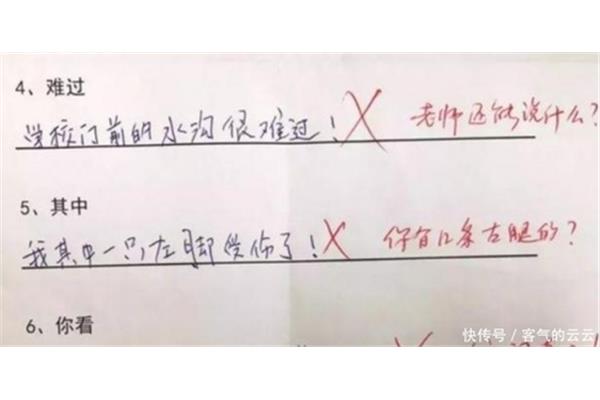 4、难过
学校门前的水沟很难过！ 老师还能说什么？
5、其中
我其中一只左脚受伤了！ 你有几条左腿的？
6、你看
快传号／客气的云云